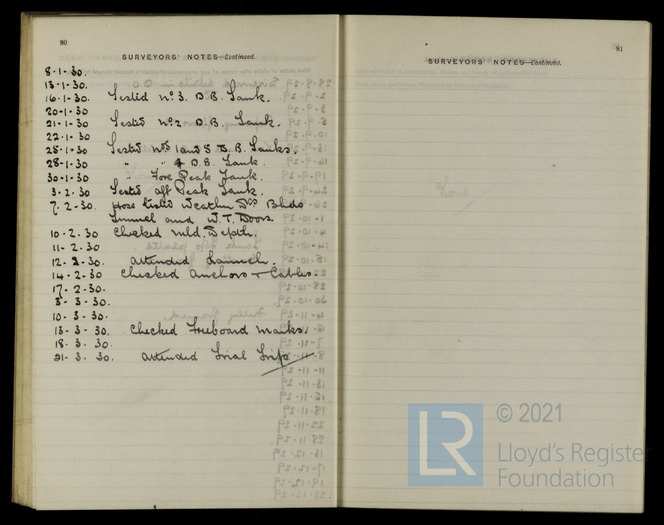 80
SURVEYORS' NOTES—Continued.
8-1-30.
13-1-30.
16-1-30. Tested No 3. D.B. Tank.
20-1-30
21-1-30 Tested No 2 D.B. Tank.
22-1-30
25-1-30 Tested Nos 1 and 5 D.B. Tanks.
28-1-30 " " 4 D.B. Tank.
30-1-30 " Fore Peak Tank.
3-2-30 Tested Aft Peak Tank.
7-2-30. Hose tested Weather Bhds
Tunnel and W.T. Doors.
10-2-30 Checked Mld. Depth.
11-2-30
12-2-30 Attended Launch.
14-2-30 Checked Anchors + Cables
17-2-30.
3-3-30.
10-3-30.
13-3-30. Checked Freeboard Marks.
18-3-30.
21-3-30. Attended Trial Trip
81
SURVEYORS' NOTES—Continued.
LR
© 2021
Lloyd's Register
Foundation